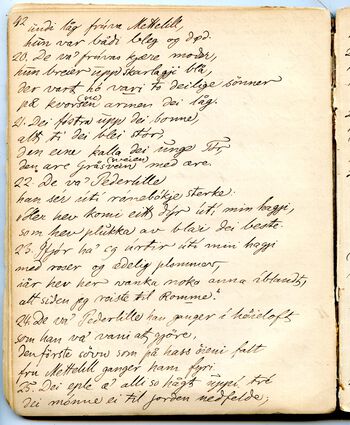 42
undi låg frúva Mettelill,
hún var bådi bleg og død.
20. De va' frúvas kjære moder,
hún breier úpp skarlagje blå,
der vart hó vari tó deilige sönner
på kvorsen armen dei låg.
21. Dei fostra úpp dei bonne,
alt ti dei blei stor,
den eine kalla dei únge
den are Gråsvein med are.
22. De va' Pederlille
han ser úti ranebókje sterke:
eller hev komi eitt dýr úti min hagji,
som hev plúkka av blaí dei beste.
23. Ifjór ha' eg úrtir úti min hagji
med roser og edelig plommor,
når hev her vanka noka anna iblandt,
alt siden jeg reiste til Romme?
24. De va' Pederlille han ganger i höieloft
som han va' vani at gjöre,
den förste sövn som på hass öieni falt
frú Mettelill ganger ham fyri.
25. Dei eple æ' alli so högt úppi tré
dei mónne ei til jorden nedfelde;